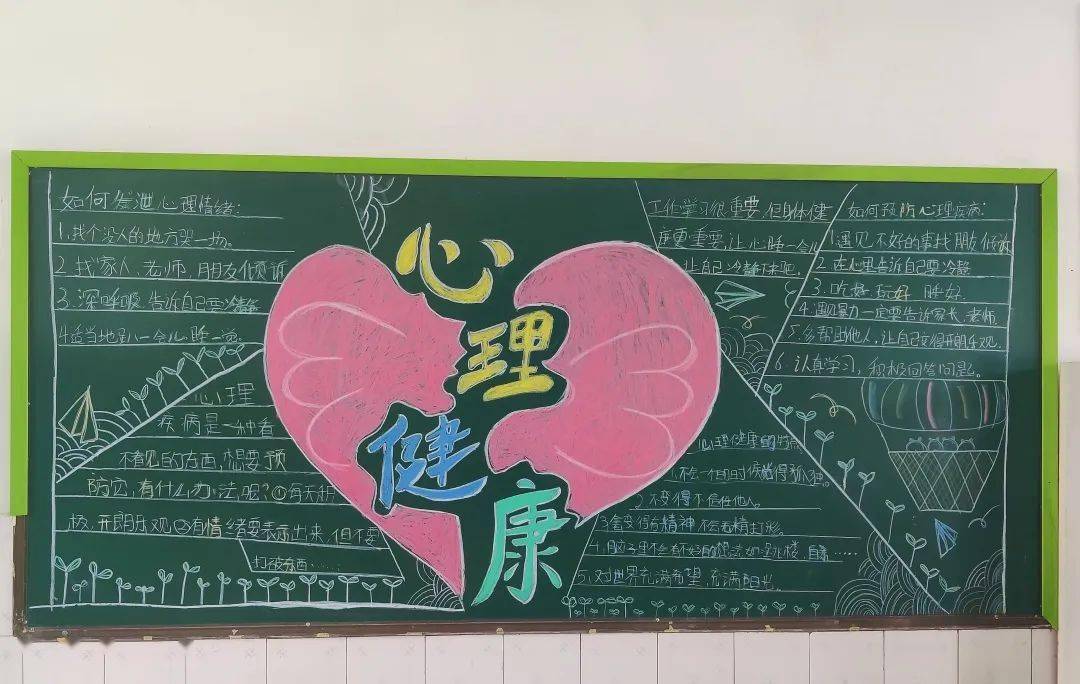 如何发泄心理情绪:
1.找个没人的地方哭一场。
2.找家人、老师、朋友倾诉
3.深呼吸,告诉自己要冷静
4.适当地趴一会儿,睡一觉。
心理
疾病是一种看
不看见的东西,想要预
防它,有什么办法呢?①每天积
极、开朗乐观②有情绪要表示出来,但不要
打破东西……
心
理
健
康
工作学习很重要,但身体健
康更重要,让心睡一会儿
让自己冷静下来吧
如何预防心理疾病:
1.遇见不好的事找朋友倾诉
2.在心里告诉自己要冷静
3.吃好 玩好 睡好.
4.遇见暴力一定要告诉家长、老师
5.多帮助他人,让自己变得开朗乐观.
6.认真学习,积极回答问题。
心理健康的特点
1.不会一个人的时候觉得孤独。
2.不变得不信任他人。
3.会变得有精神不会无精打彩.
4.脑子里不会有不好的想法如:跳楼、自杀……
5.对世界充满希望,充满阳光。